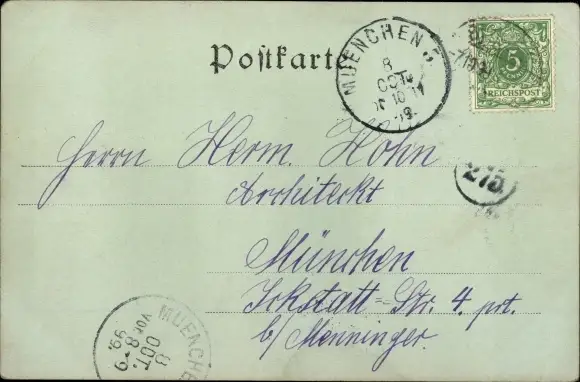 Postkarte
MUENCHEN
8
OCT.
5
REICHSPOST
Herrn Herm. Hohn
Architeckt
275
München
Ickstatt-Str. 4 prt.
b/ Menninger.
MUENCHE
8
OCT.
99.
VOR 8-9